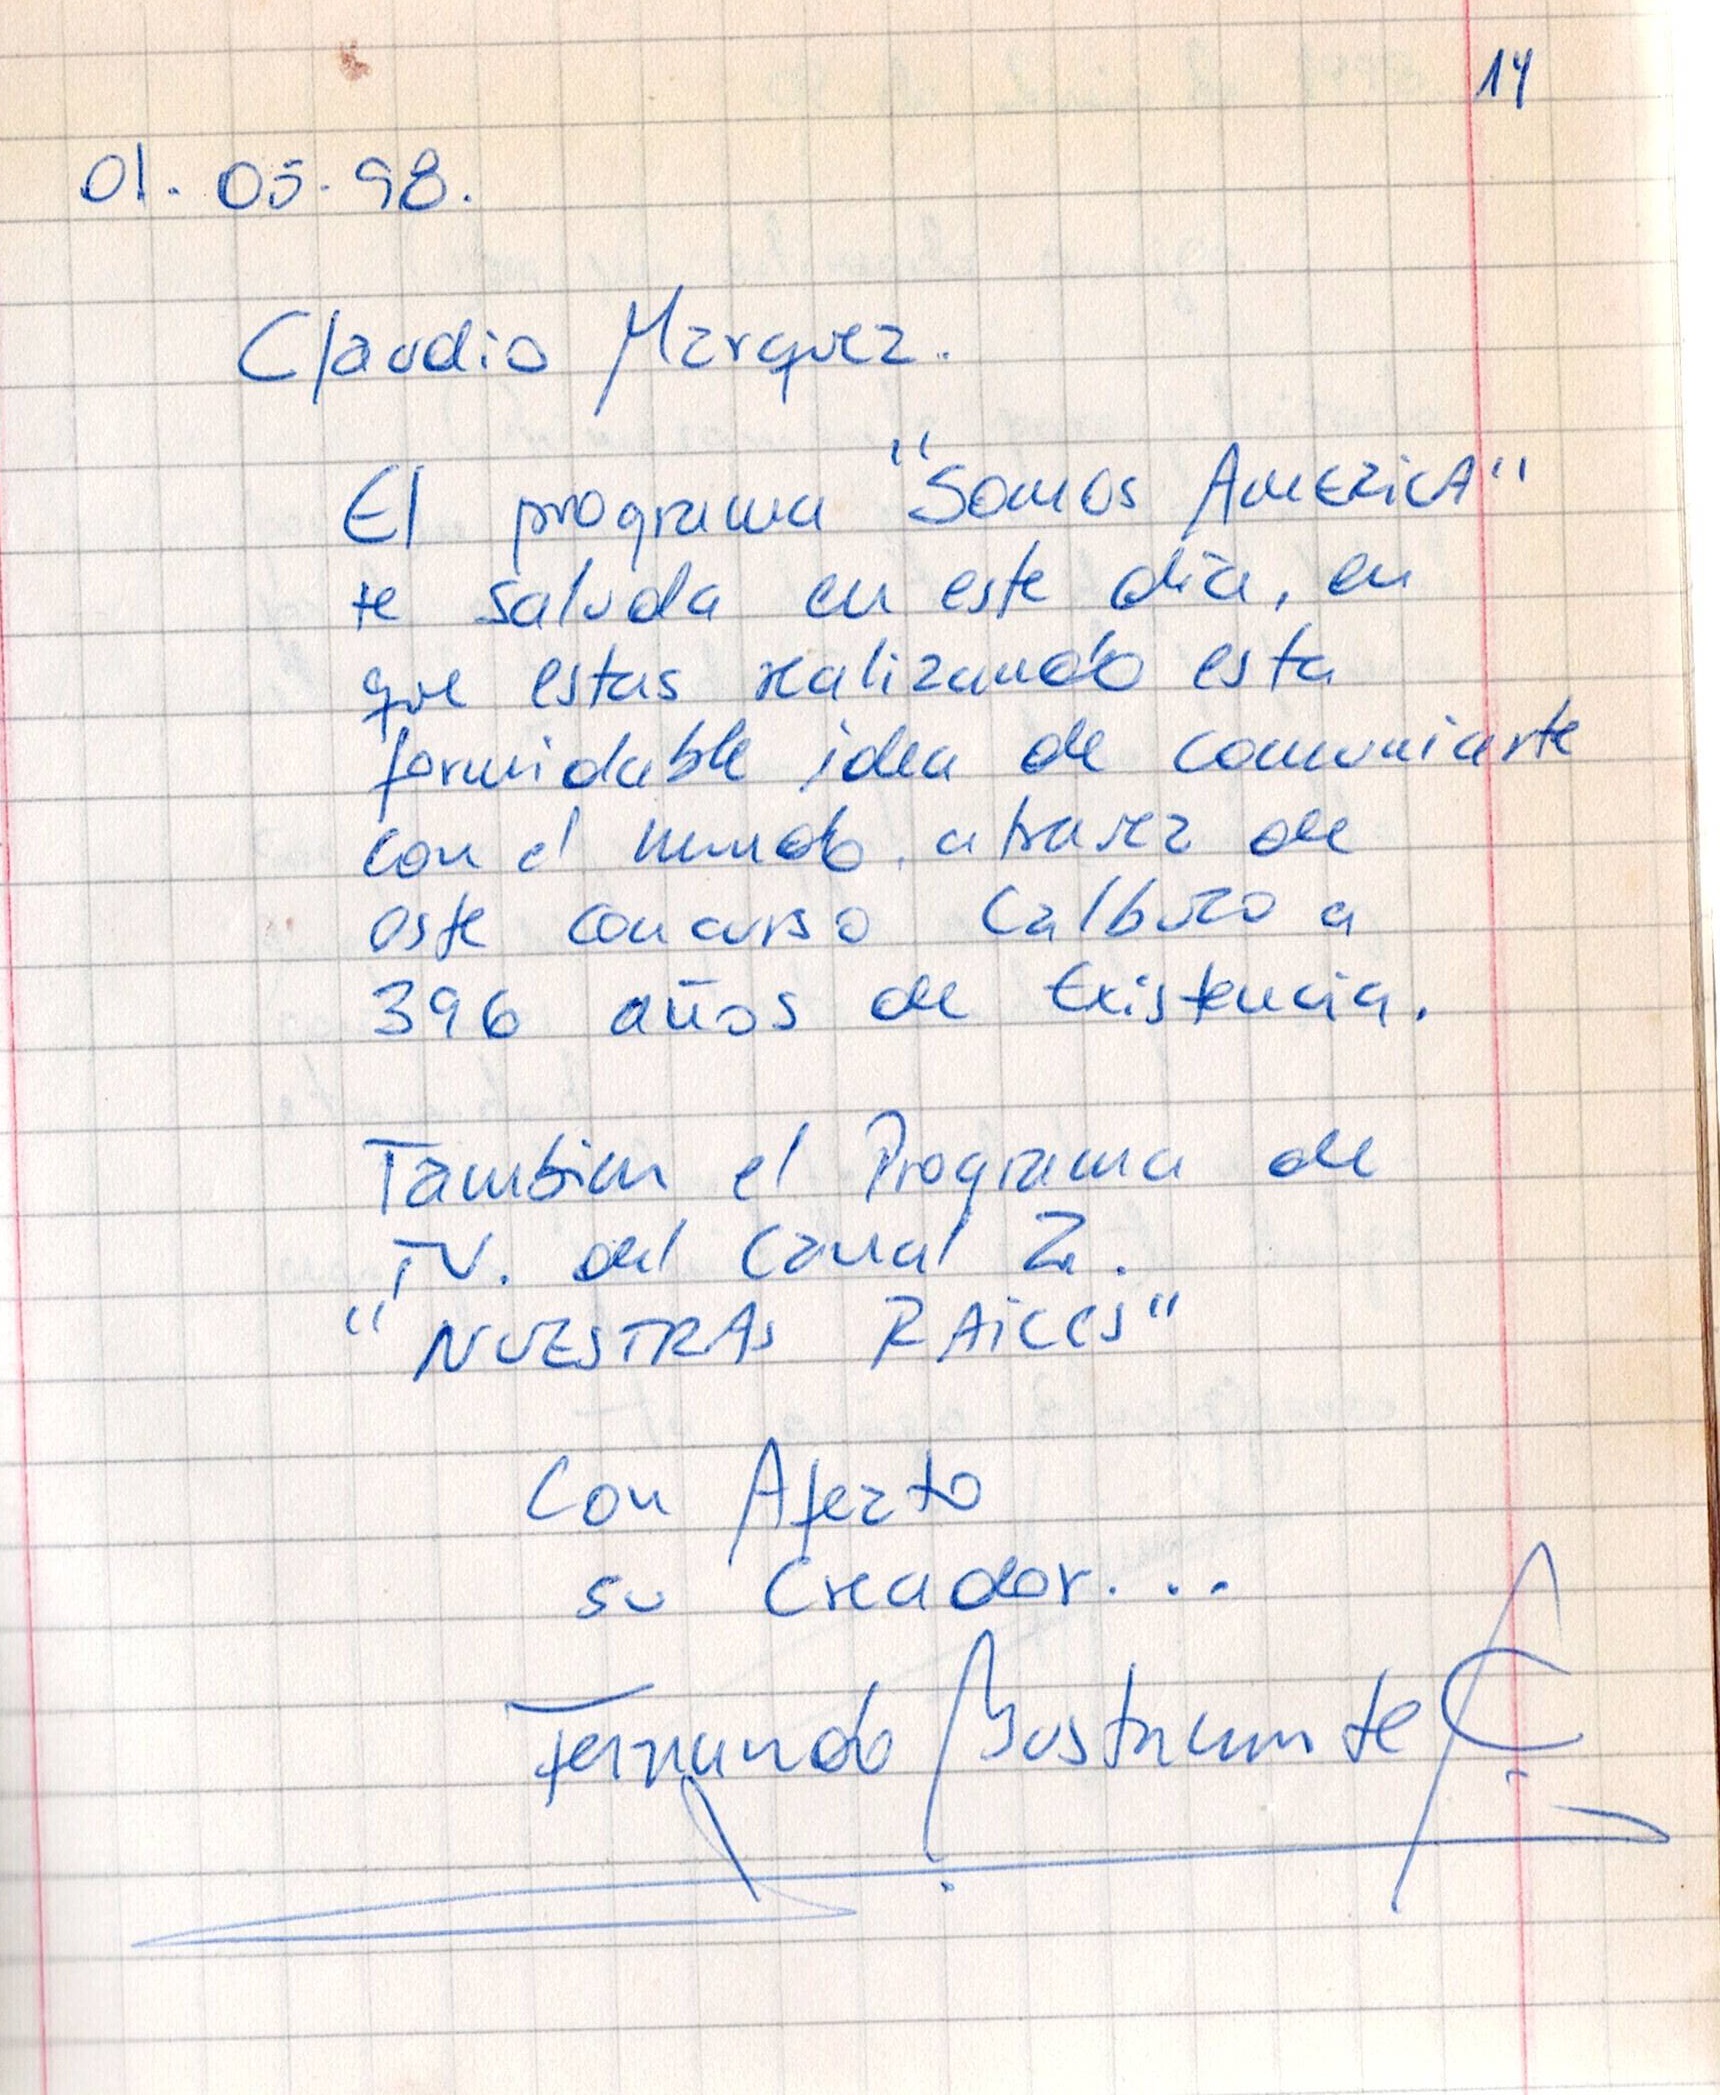 14
01. 05. 98.
Claudio Marquez.
El programa "Somos AMERICA"
te saluda en este día, en
que estas realizando esta
formidable idea de comuniarte
con el mundo, atravez de
este concurso Calbuco a
396 años de Existencia.
Tambien el Programa de
TV. del Canal 2.
"NUESTRAS RAICES"
Con Afecto
su Creador...
Fernando Bustamante C.